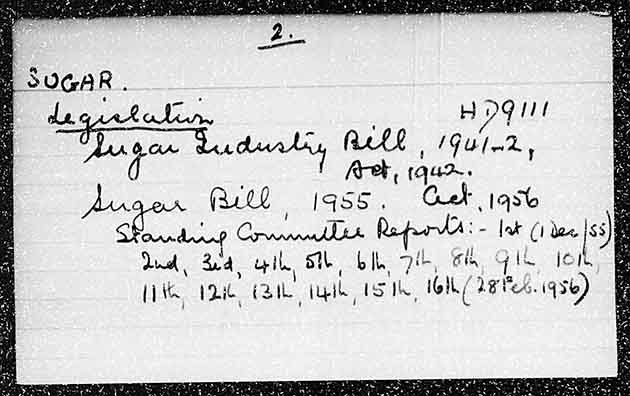 2.
SUGAR.
Legislation HD9111
Sugar Industry Bill, 1941-2,
Act, 1942.
Sugar Bill, 1955. Act, 1956
Standing Committee Reports:- 1st (1 Dec/55)
2nd, 3rd, 4th, 5th, 6th, 7th, 8th, 9th, 10th,
11th, 12th, 13th, 14th, 15th, 16th (28 Feb. 1956)